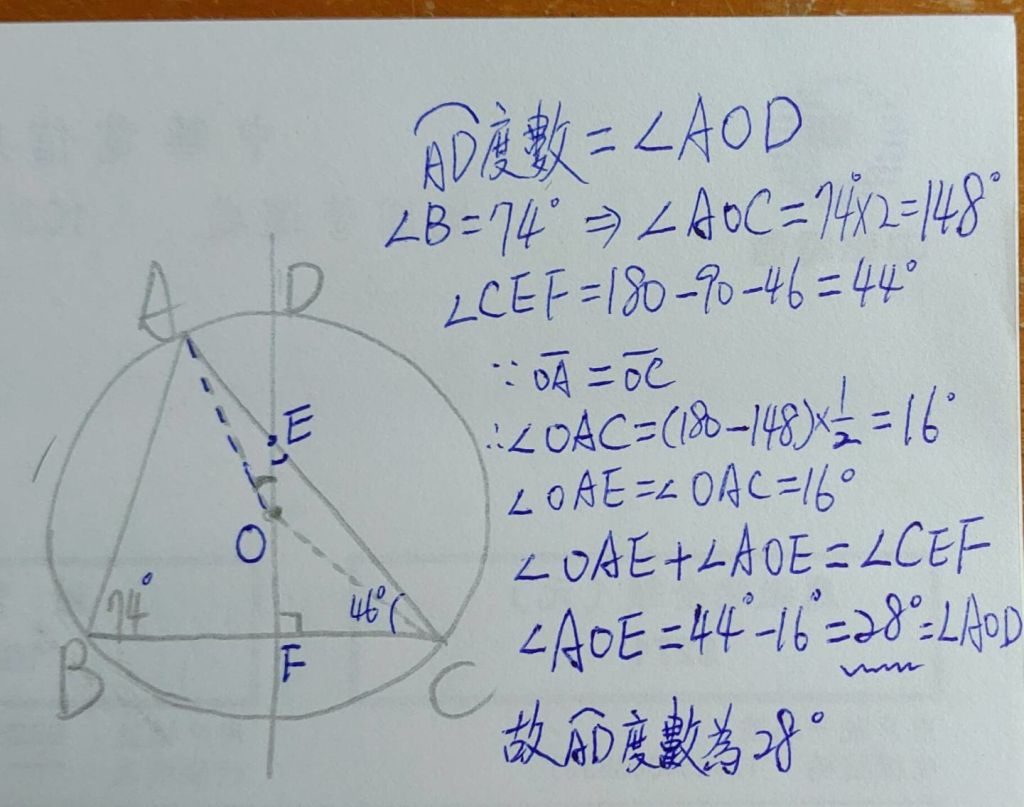 ⌒AD度數=∠AOD
∠B=74°⇒∠AOC=74°×2=148°
∠CEF=180-90-46=44°
∵OA=OC
∴∠OAC=(180-148)×1/2=16°
∠OAE=∠OAC=16°
∠OAE+∠AOE=∠CEF
∠AOE=44°-16°=28°=∠AOD
故⌒AD度數為28°
A
D
E
O
74°
46°
B
F
C